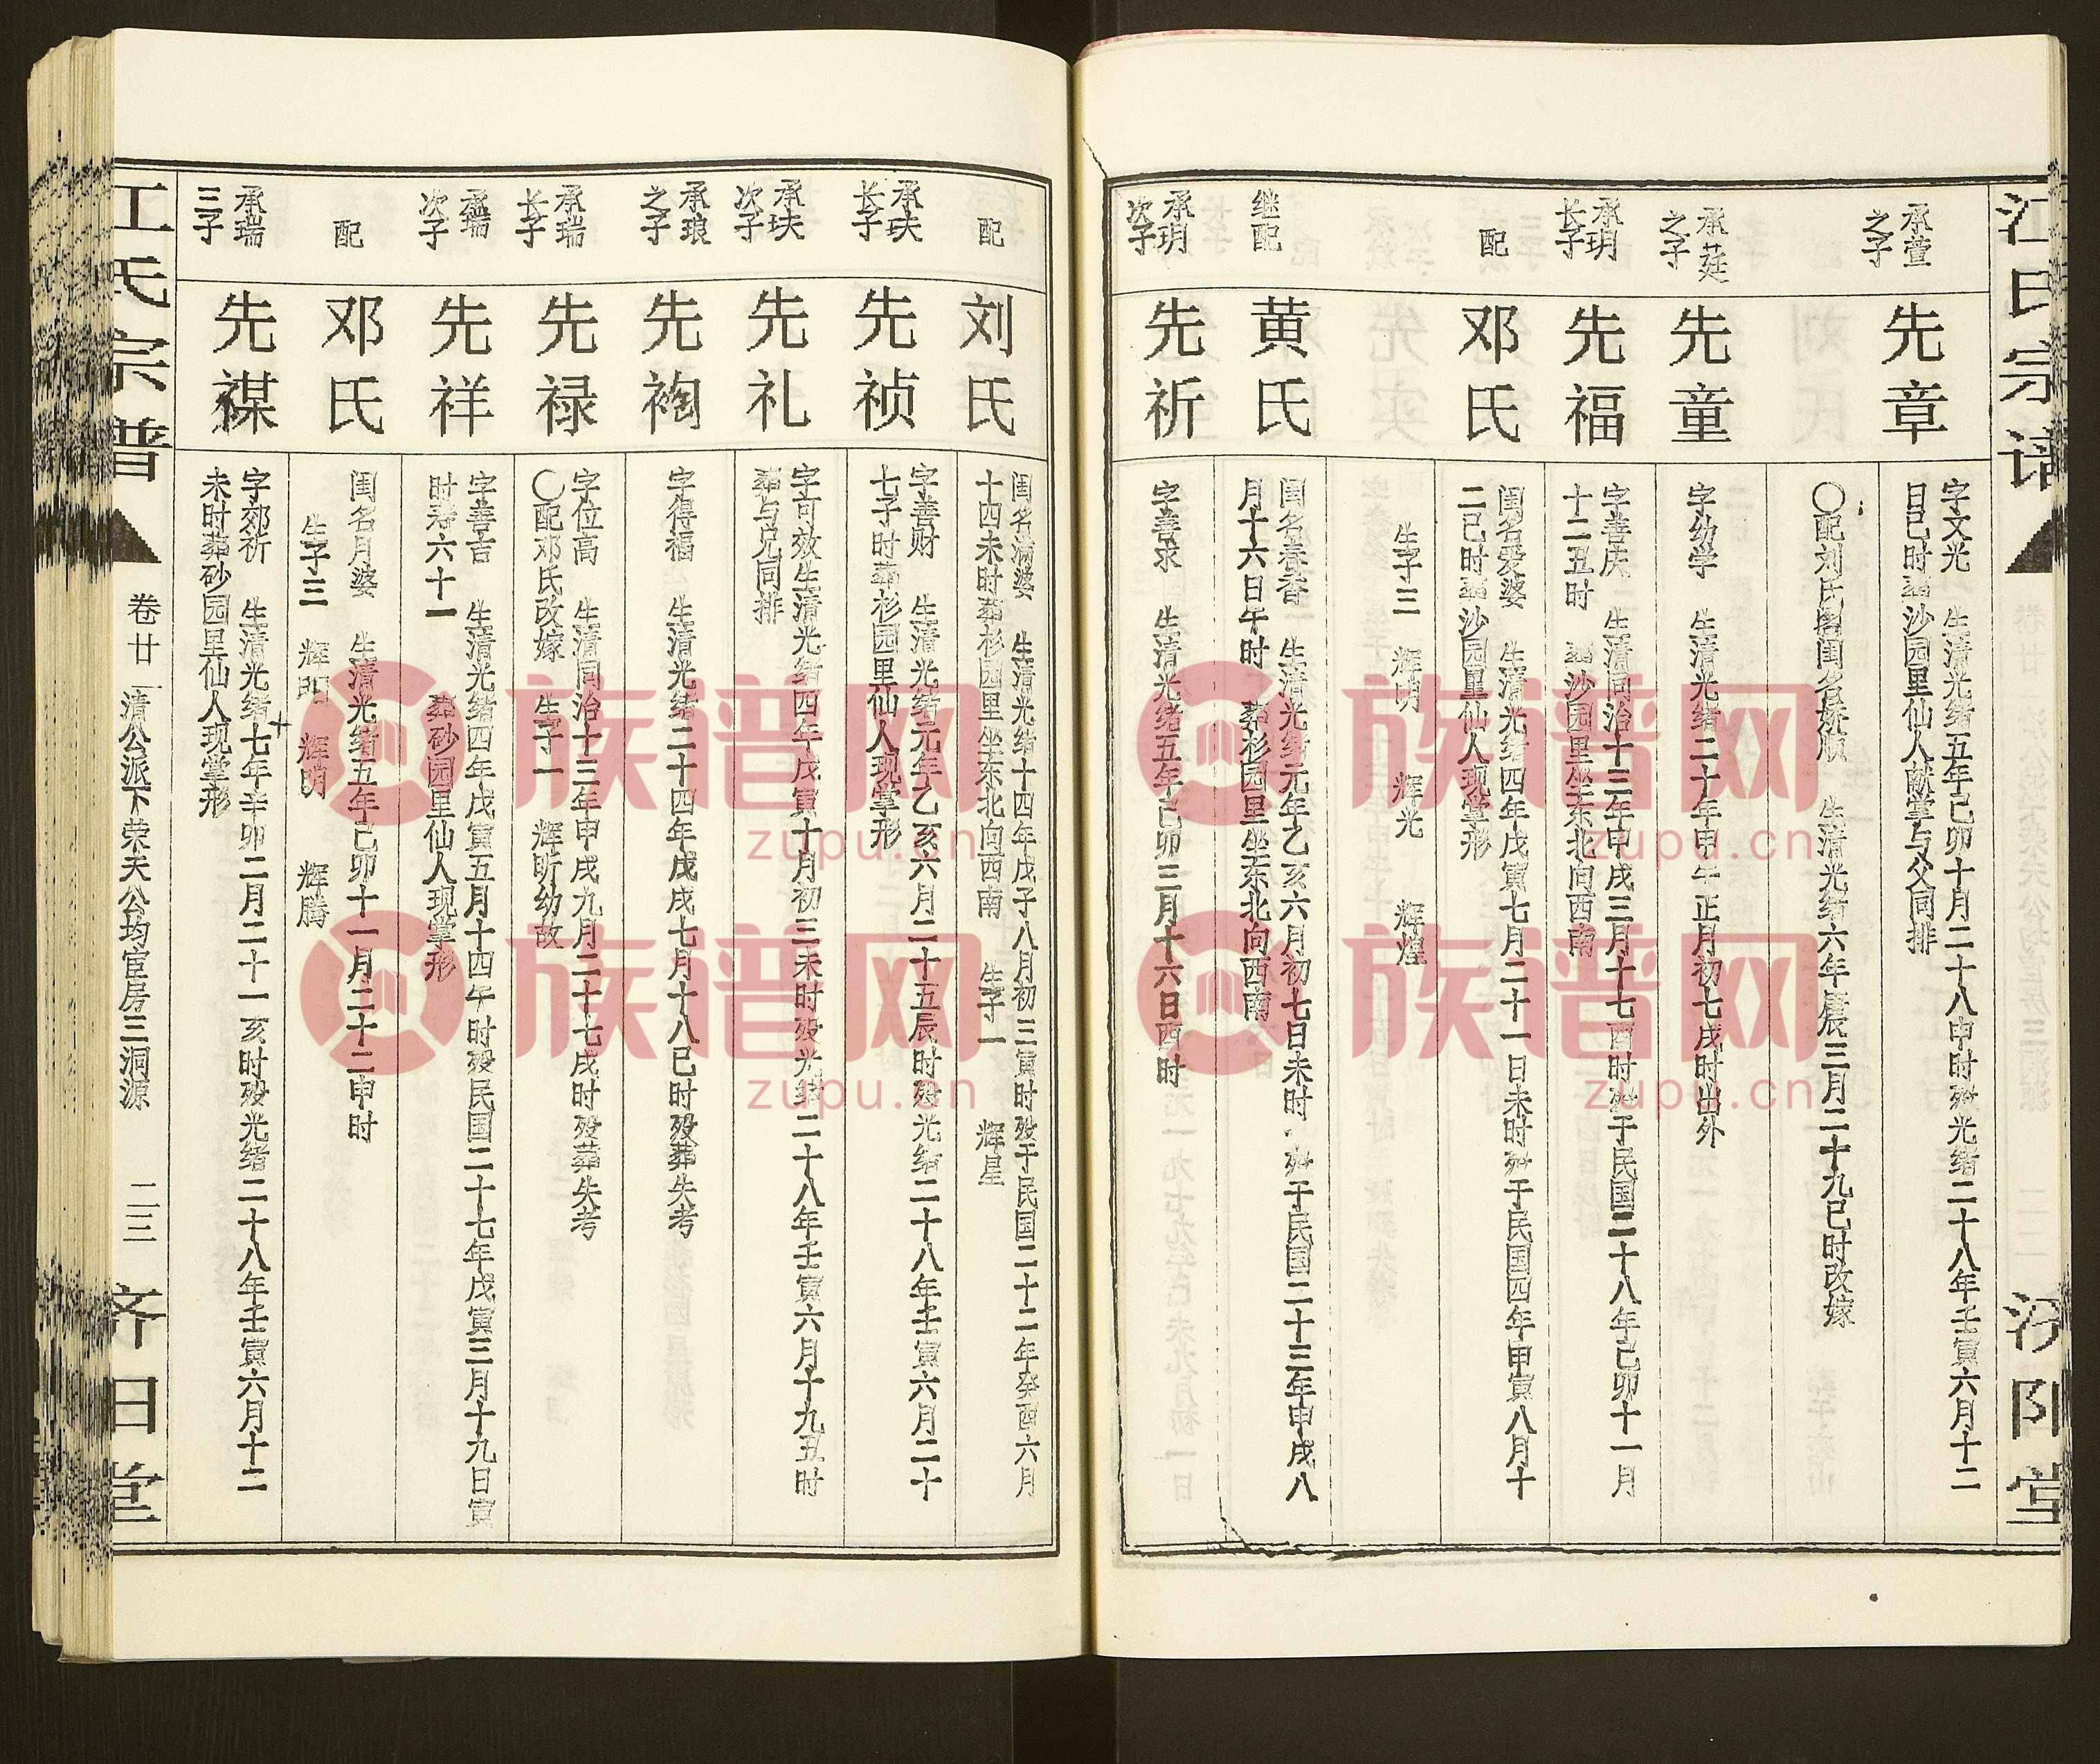 江氏宗谱
承萱
之子
先章
字文光　生清光绪五年己卯十月二十八申时殁光绪二十八年壬寅六月十二
日巳时葬沙园里仙人献掌与父同排
〇配刘氏
闺名娇顺　生清光绪六年庚辰三月二十九巳时改嫁
承莚
之子
先童
字幼学　生清光绪二十年甲午正月初七戌时出外
承玥
长子
先福
字善庆　生清同治十三年甲戌三月十七酉时殁于民国二十八年己卯十一月
十二丑时　葬沙园里坐东北向西南
配
邓氏
闺名爱婆　生清光绪四年戊寅七月二十一日未时殁于民国四年甲寅八月十
二巳时葬沙园里仙人现掌形
生子三　辉明　辉光　辉煌
继配
黄氏
闺名春香　生清光绪元年乙亥六月初七日未时殁于民国二十三年甲戌八
月十六日午时　葬杉园里坐东北向西南
承玥
次子
先祈
字善求　生清光绪五年己卯三月十六日酉时
配
刘氏
闺名满婆　生清光绪十四年戊子八月初三寅时殁于民国二十二年癸酉六月
十四未时葬杉园里坐东北向西南　生子一　辉星
承玞
长子
先祯
字善财　生清光绪元年乙亥六月二十五辰时殁光绪二十八年壬寅六月二十
七子时葬杉园里仙人现掌形
承玞
次子
先礼
字可效生清光绪四年戊寅十月初三未时殁光绪二十八年壬寅六月十九丑时
葬与兄同排
承琅
之子
先裪
字得福　生清光绪二十四年戊戌七月十八巳时殁葬失考
承瑞
长子
先禄
字位高　生清同治十三年甲戌九月二十七戌时殁葬失考
〇配邓氏改嫁　生子一　辉昕幼故
承瑞
次子
先祥
字善吉　生清光绪四年戊寅五月十四午时殁民国二十七年戊寅三月十九日寅
时寿六十一　葬砂园里仙人现掌形
配
邓氏
闺名月婆　生清光绪五年己卯十一月二十二申时
生子三　辉阳　辉明　辉腾
承瑞
三子
先禖
字郊祈　生清光绪十七年辛卯二月二十一亥时殁光绪二十八年壬寅六月十二
未时葬砂园里仙人现掌形
江氏宗谱
卷廿一
清公派下荣天公均宦房三洞源
二三
济阳堂
族谱网
zupu.cn
族谱网
zupu.cn
族谱网
zupu.cn
族谱网
zupu.cn